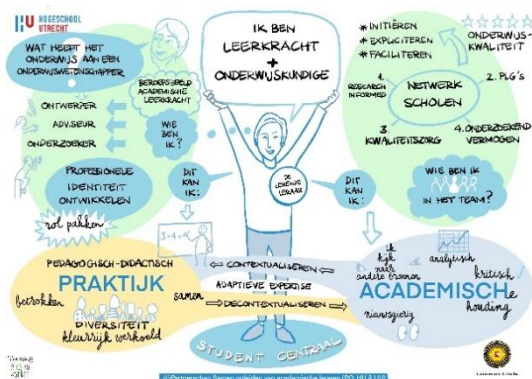 HOGESCHOOL
UTRECHT
WAT HEEFT HET
ONDERWIJS AAN EEN
ONDERWIJSWETENSCHAPPER
?
ONTWERPER
ADVISEUR
ONDERZOEKER
BEROEPSBEELD
ACADEMISCHE
LEERKRACHT
WIE
BEN
IK?
PROFESSIONELE
IDENTITEIT
ONTWIKKELEN
rol pakken
IK BEN
LEERKRACHT
+
ONDERWIJSKUNDIGE
DE
LERENDE
LERAAR
DIT
KAN
IK:
DIT
KAN
IK:
* INITIËREN
* EXPLICITEREN
* FACILITEREN
ONDERWIJS-
KWALITEIT
1.
RESEARCH
INFORMED
2. PLG'S
NETWERK
SCHOLEN
3.
KWALITEITSZORG
4. ONDERZOEKEND
VERMOGEN
WIE BEN IK
IN HET TEAM?
PEDAGOGISCH-DIDACTISCH
PRAKTIJK
betrokken
samen
DIVERSITEIT
kleurrijk werkveld
CONTEXTUALISEREN
ADAPTIEVE EXPERTISE
DECONTEXTUALISEREN
ik
kijk
naar
andere bronnen
analytisch
kritisch
ACADEMISCH
e
houding
nieuwsgierig
STUDENT CENTRAAL